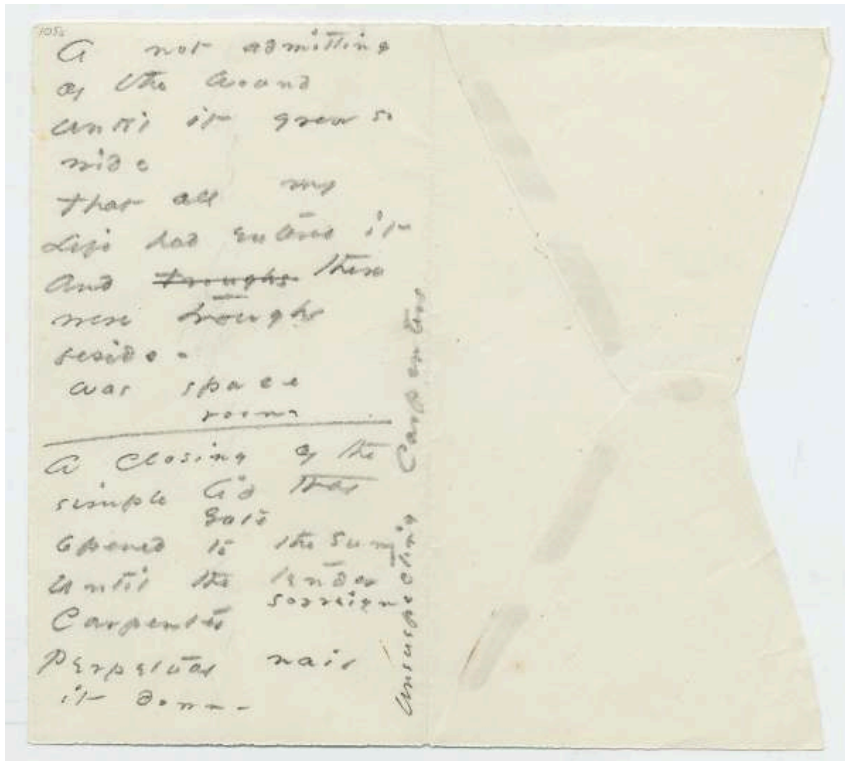 A not admitting
of the wound
until it grew so
wide
that all my
Life had entered it
And troughs there
were troughs
beside -
was space
room
A closing of the
simple lid that
Gate
opened to the sun
Until the tender
sovreign
Carpenter
Perpetual nail
it down -
Unsuspecting Carpenters